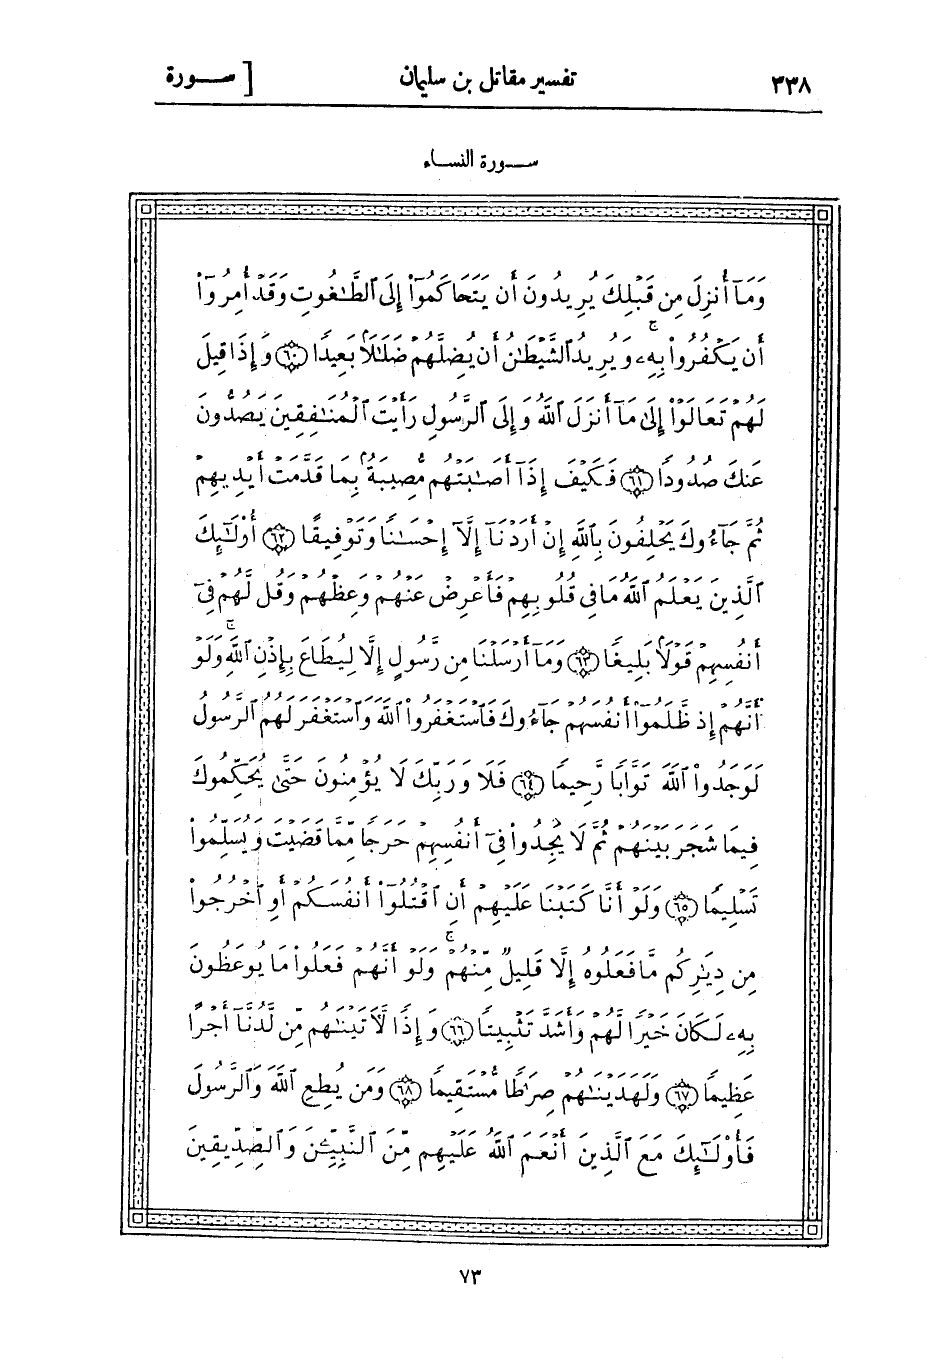 ٣٣٨ تفسير مقاتل بن سليمان [ ســورة
ســورة النســاء
وَمَآ أُنزِلَ مِن قَبْلِكَ يُرِيدُونَ أَن يَتَحَاكَمُوٓا۟ إِلَى ٱلطَّـٰغُوتِ وَقَدْ أُمِرُوٓا۟
أَن يَكْفُرُوا۟ بِهِۦ ۚ وَيُرِيدُ ٱلشَّيْطَـٰنُ أَن يُضِلَّهُمْ ضَلَـٰلًۢا بَعِيدًا ﴿٦٠﴾ وَإِذَا قِيلَ
لَهُمْ تَعَالَوْا۟ إِلَىٰ مَآ أَنزَلَ ٱللَّهُ وَإِلَى ٱلرَّسُولِ رَأَيْتَ ٱلْمُنَـٰفِقِينَ يَصُدُّونَ
عَنكَ صُدُودًا ﴿٦١﴾ فَكَيْفَ إِذَآ أَصَـٰبَتْهُم مُّصِيبَةٌۢ بِمَا قَدَّمَتْ أَيْدِيهِمْ
ثُمَّ جَآءُوكَ يَحْلِفُونَ بِٱللَّهِ إِنْ أَرَدْنَآ إِلَّآ إِحْسَـٰنًا وَتَوْفِيقًا ﴿٦٢﴾ أُو۟لَـٰٓئِكَ
ٱلَّذِينَ يَعْلَمُ ٱللَّهُ مَا فِى قُلُوبِهِمْ فَأَعْرِضْ عَنْهُمْ وَعِظْهُمْ وَقُل لَّهُمْ فِىٓ
أَنفُسِهِمْ قَوْلًۢا بَلِيغًا ﴿٦٣﴾ وَمَآ أَرْسَلْنَا مِن رَّسُولٍ إِلَّا لِيُطَاعَ بِإِذْنِ ٱللَّهِ ۚ وَلَوْ
أَنَّهُمْ إِذ ظَّلَمُوٓا۟ أَنفُسَهُمْ جَآءُوكَ فَٱسْتَغْفَرُوا۟ ٱللَّهَ وَٱسْتَغْفَرَ لَهُمُ ٱلرَّسُولُ
لَوَجَدُوا۟ ٱللَّهَ تَوَّابًا رَّحِيمًا ﴿٦٤﴾ فَلَا وَرَبِّكَ لَا يُؤْمِنُونَ حَتَّىٰ يُحَكِّمُوكَ
فِيمَا شَجَرَ بَيْنَهُمْ ثُمَّ لَا يَجِدُوا۟ فِىٓ أَنفُسِهِمْ حَرَجًا مِّمَّا قَضَيْتَ وَيُسَلِّمُوا۟
تَسْلِيمًا ﴿٦٥﴾ وَلَوْ أَنَّا كَتَبْنَا عَلَيْهِمْ أَنِ ٱقْتُلُوٓا۟ أَنفُسَكُمْ أَوِ ٱخْرُجُوا۟
مِن دِيَـٰرِكُم مَّا فَعَلُوهُ إِلَّا قَلِيلٌ مِّنْهُمْ ۖ وَلَوْ أَنَّهُمْ فَعَلُوا۟ مَا يُوعَظُونَ
بِهِۦ لَكَانَ خَيْرًا لَّهُمْ وَأَشَدَّ تَثْبِيتًا ﴿٦٦﴾ وَإِذًا لَّـَٔاتَيْنَـٰهُم مِّن لَّدُنَّآ أَجْرًا
عَظِيمًا ﴿٦٧﴾ وَلَهَدَيْنَـٰهُمْ صِرَٰطًا مُّسْتَقِيمًا ﴿٦٨﴾ وَمَن يُطِعِ ٱللَّهَ وَٱلرَّسُولَ
فَأُو۟لَـٰٓئِكَ مَعَ ٱلَّذِينَ أَنْعَمَ ٱللَّهُ عَلَيْهِم مِّنَ ٱلنَّبِيِّـۧنَ وَٱلصِّدِّيقِينَ
٧٣